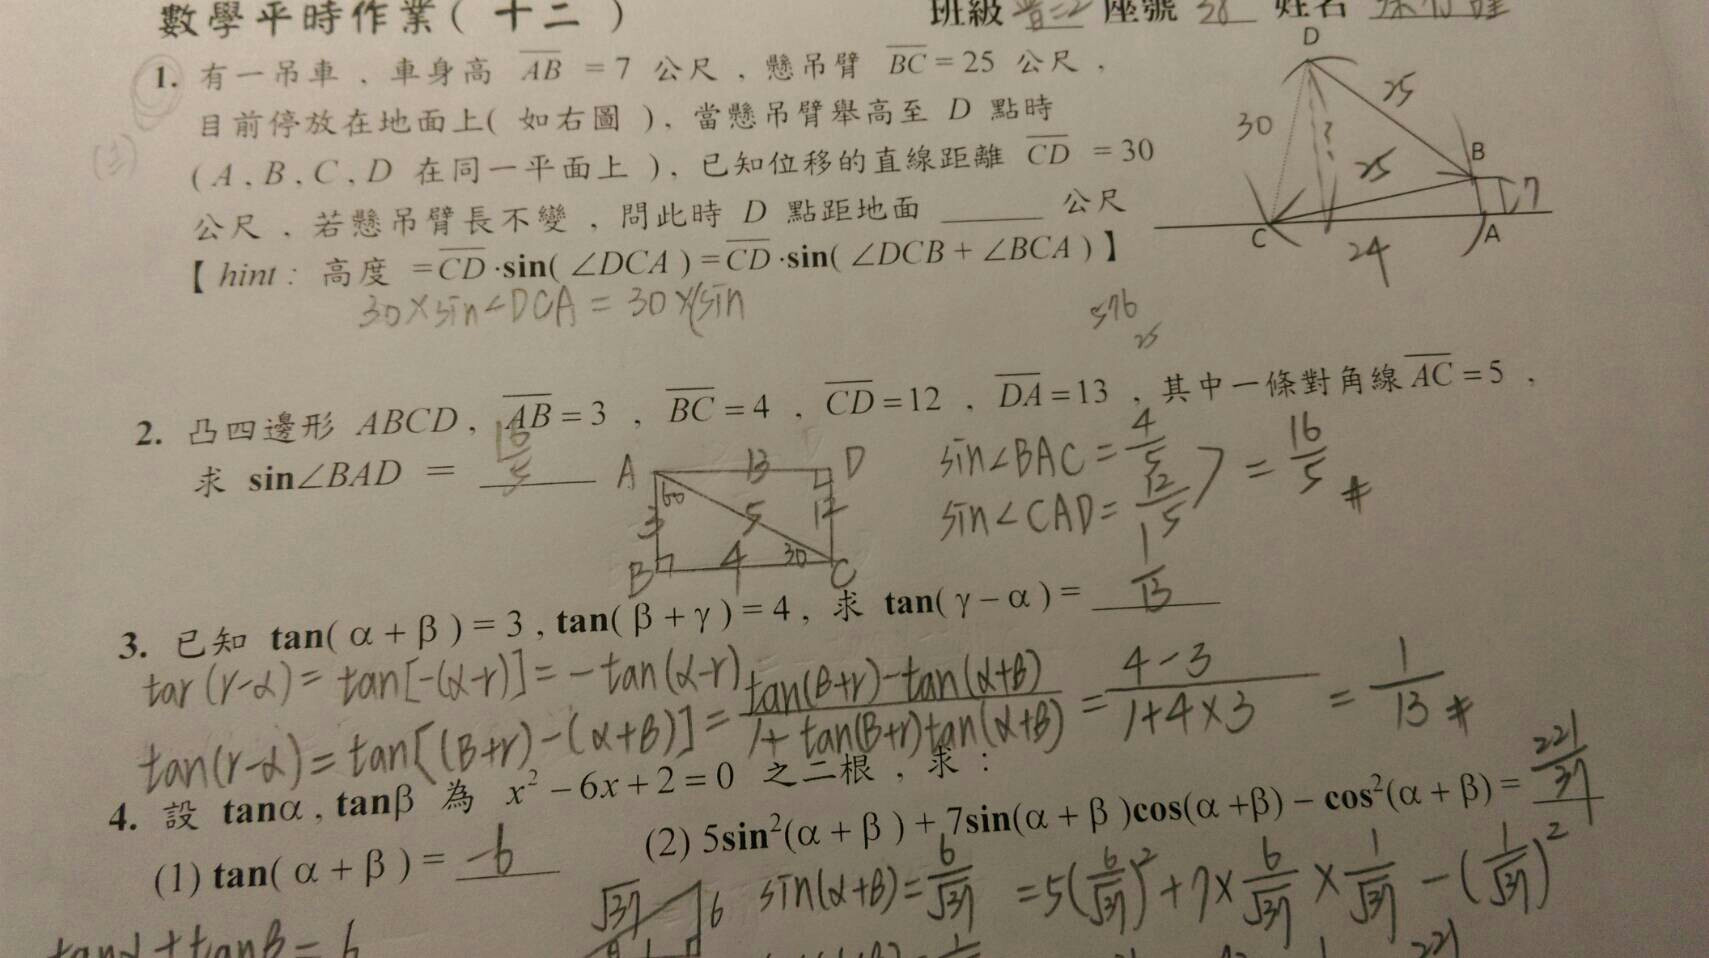 數學平時作業( 十二 )
班級 普三2 座號 38 姓名
1. 有一吊車 , 車身高 AB = 7 公尺 , 懸吊臂 BC = 25 公尺 ,
目前停放在地面上( 如右圖 ) , 當懸吊臂舉高至 D 點時
( A , B , C , D 在同一平面上 ) , 已知位移的直線距離 CD = 30
公尺 , 若懸吊臂長不變 , 問此時 D 點距地面 ______ 公尺
【 hint : 高度 = CD ·sin( ∠DCA ) = CD ·sin( ∠DCB + ∠BCA ) 】
30×sin∠DCA = 30×(sin
D
25
30
?
25
B
7
C
24
A
576
25
2. 凸四邊形 ABCD , AB = 3 , BC = 4 , CD = 12 , DA = 13 , 其中一條對角線 AC = 5 ,
求 sin∠BAD = 16/5
A 13 D
60
3 5 12
B 4 30 C
sin∠BAC = 4/5
sin∠CAD = 12/5
= 16/5 #
3. 已知 tan( α + β ) = 3 , tan( β + γ ) = 4 , 求 tan( γ − α ) = 1/13
tan(r-α) = tan[-(α-r)] = -tan(α-r)
tan(r-α) = tan[(β+r)-(α+β)] = tan(β+r)-tan(α+β) / 1+tan(β+r)tan(α+β) = 4-3 / 1+4×3 = 1/13 #
4. 設 tanα , tanβ 為 x² − 6x + 2 = 0 之二根 , 求 :
(1) tan( α + β ) = -6
(2) 5sin²(α + β ) + 7sin(α + β )cos(α +β) − cos²(α + β) = 221/37
√37 6
sin(α+β) = 6/√37 = 5(6/√37)² + 7× 6/√37 × 1/√37 - (1/√37)²
tanα + tanβ = 6
221